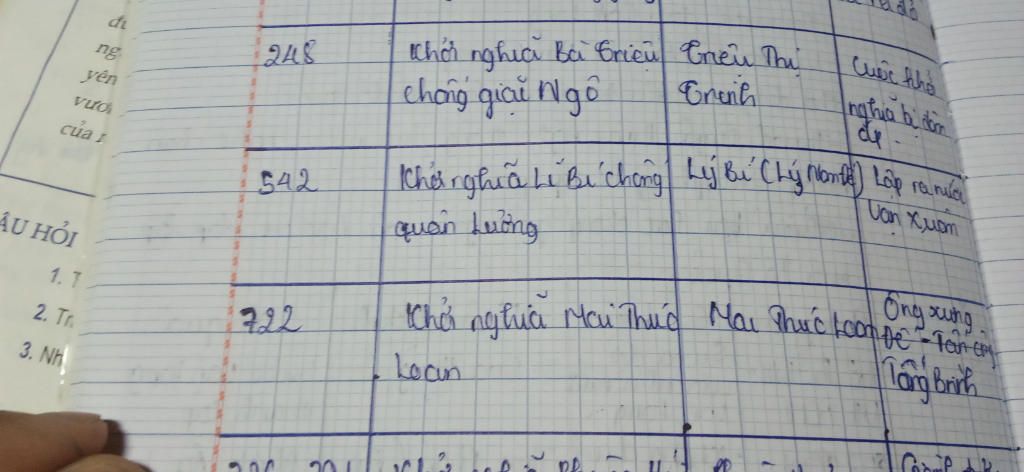 đư
ng
yên
vươ
của
248 Khởi nghĩa Bà Triệu Triệu Thị Cuộc khở
chống giặc Ngô Trinh nghĩa bị đàn
dẹp.
542 Khởi nghĩa Lí Bí chống Lý Bí (Lý Nam Đế) Lập ra nước
quân Lương Vạn Xuân
ÂU HỎI
1. T
2. Tr
3. Nh
722 Khởi nghĩa Mai Thúc Mai Thúc Loan Ông xưng
Loan Đế - Tấn công
Tống Bình